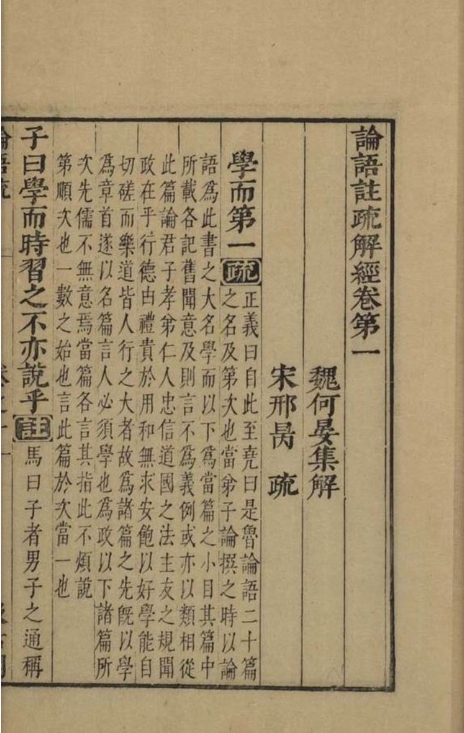 論語註疏解經卷第一
魏何晏集解
宋邢昺 疏
學而第一 疏 正義曰自此至堯曰是魯論語二十篇
之名及第次也當弟子論撰之時以論
語爲此書之大名學而以下爲當篇之小目其篇中
所載各記舊聞意及則言不爲義例或亦以類相從
此篇論君子孝弟仁人忠信道國之法主友之規聞
政在乎行德由禮貴於用和無求安飽以好學能自
切磋而樂道皆人行之大者故爲諸篇之先旣以學
爲章首遂以名篇言人必須學也爲政以下諸篇所
次先儒不無意焉當篇各言其指此不煩說
第順次也一數之始也言此篇於次當一也
子曰學而時習之不亦說乎 註 馬曰子者男子之通稱
論語疏